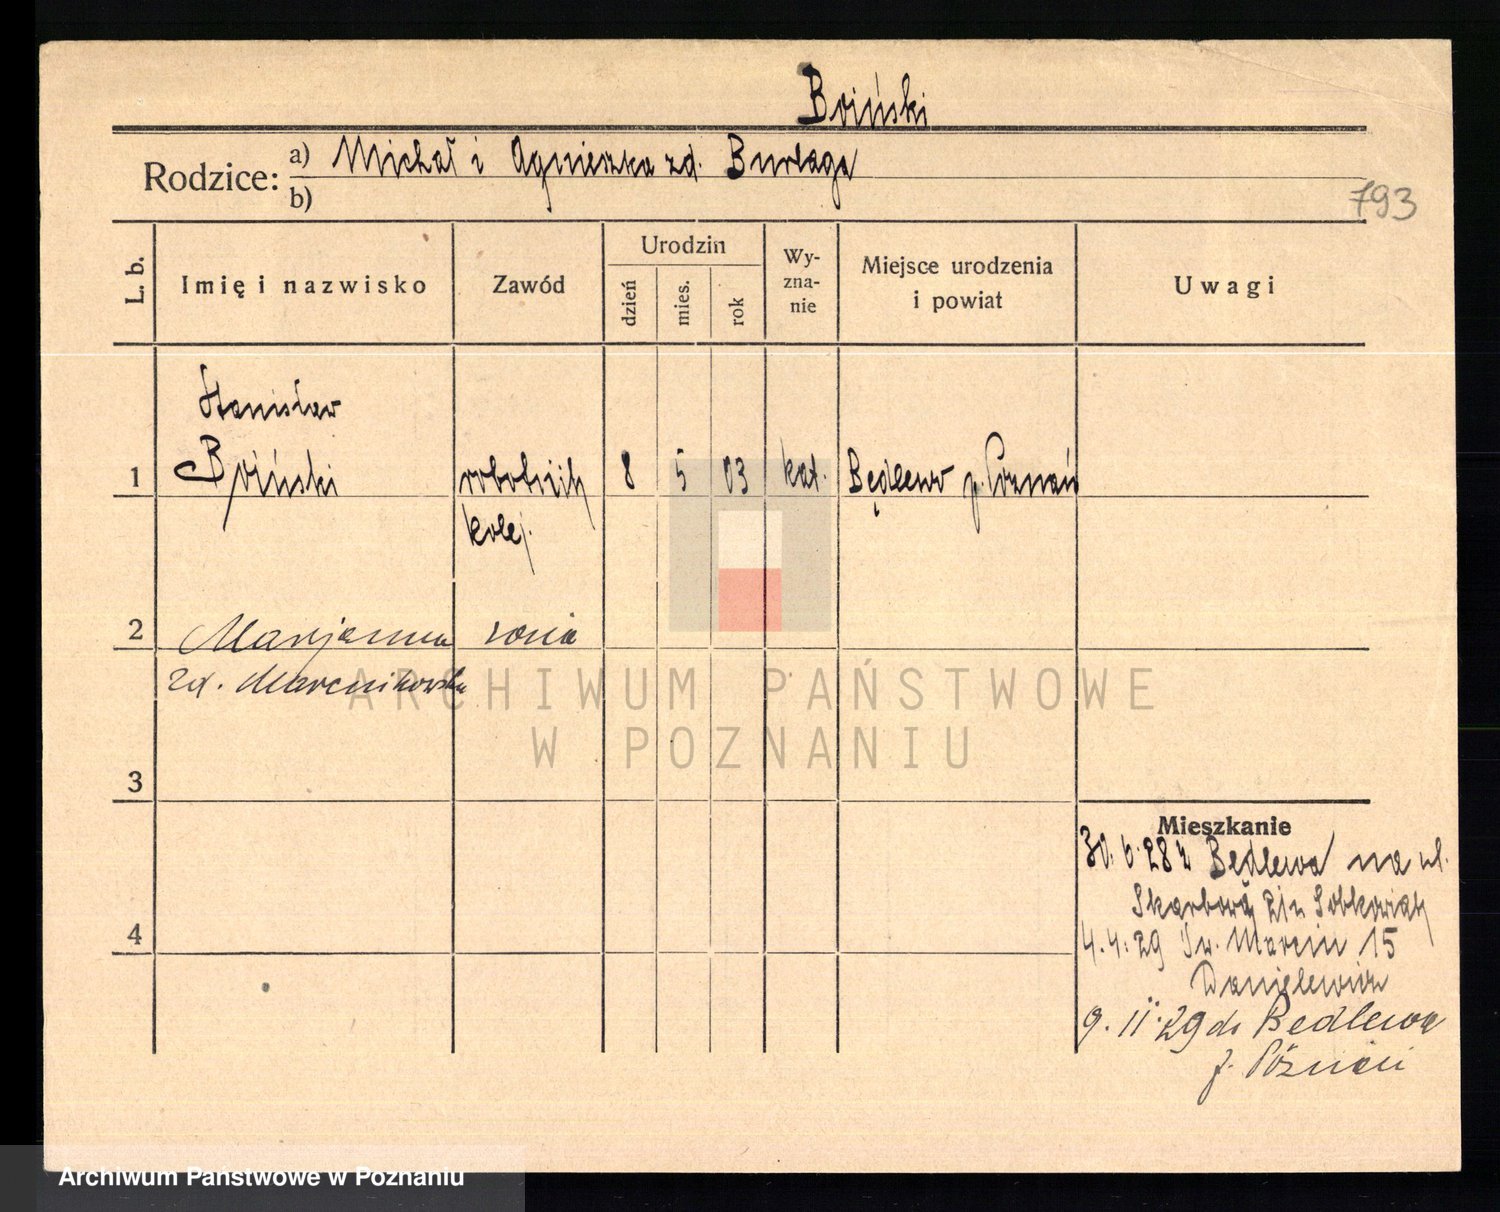 Boiński
Rodzice: a) Michał i Agnieszka zd. Burlaga
b)
793
L. b.
Imię i nazwisko
Zawód
Urodzin
dzień
mies.
rok
Wy-
zna-
nie
Miejsce urodzenia
i powiat
Uwagi
Stanisław
1 Boiński robotnik 8 5 03 kat. Będlewo p. Poznań
kolej.
2 Marjanna żona
zd. Marcinikowska
3
4
Mieszkanie
30.6.28 z Będlewa na ul.
Skarbową 21 u Sobkowiak
4.4.29 Św. Marcin 15
Danielewicz
9.11.29 do Bedlewa
p. Poznań
ARCHIWUM PAŃSTWOWE
W POZNANIU
Archiwum Państwowe w Poznaniu